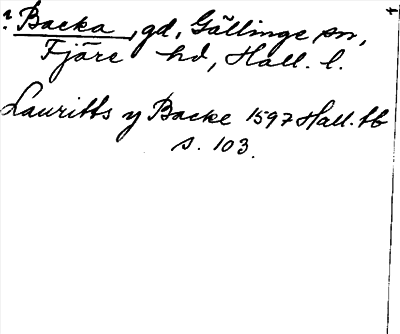 ? Backa, gd, Gällinge sn,
Fjäre hd, Hall. l.
Lauritts y Backe 1597 Hall. tb
s. 103.